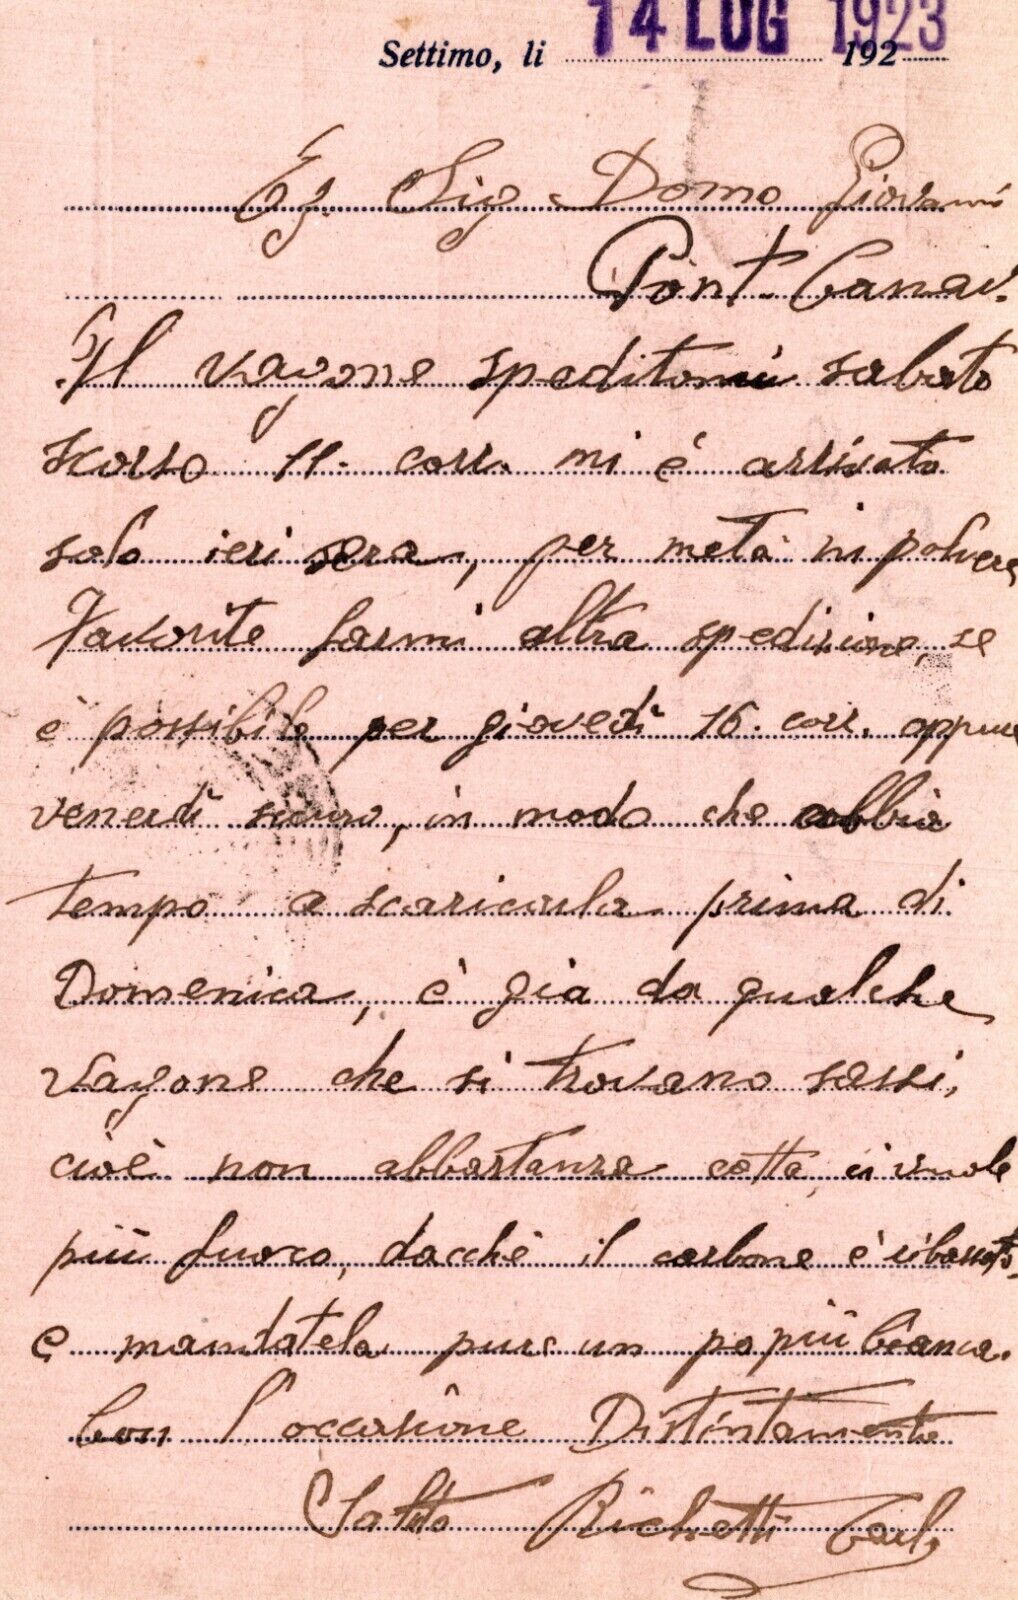 Settimo, li 14 LUG 1923 192
Eg. Sig. Domo Giovanni
Pont. Canav.
Il vagone speditomi sabato
scorso 11. corr. mi è arrivato
solo ieri sera, per metà in polvere
Favorite farmi altra spedizione, se
è possibile per giovedì 16. corr. oppure
venerdì, in modo che abbia
tempo a scaricarla prima di
Domenica, è già da qualche
vagone che si trovano sassi,
cioè non abbastanza cotta, ci vuole
più fuoco, dacchè il carbone è ribassato,
e mandatela pure un po più bianca.
Con l'occasione Distintamente
Richetti Carlo